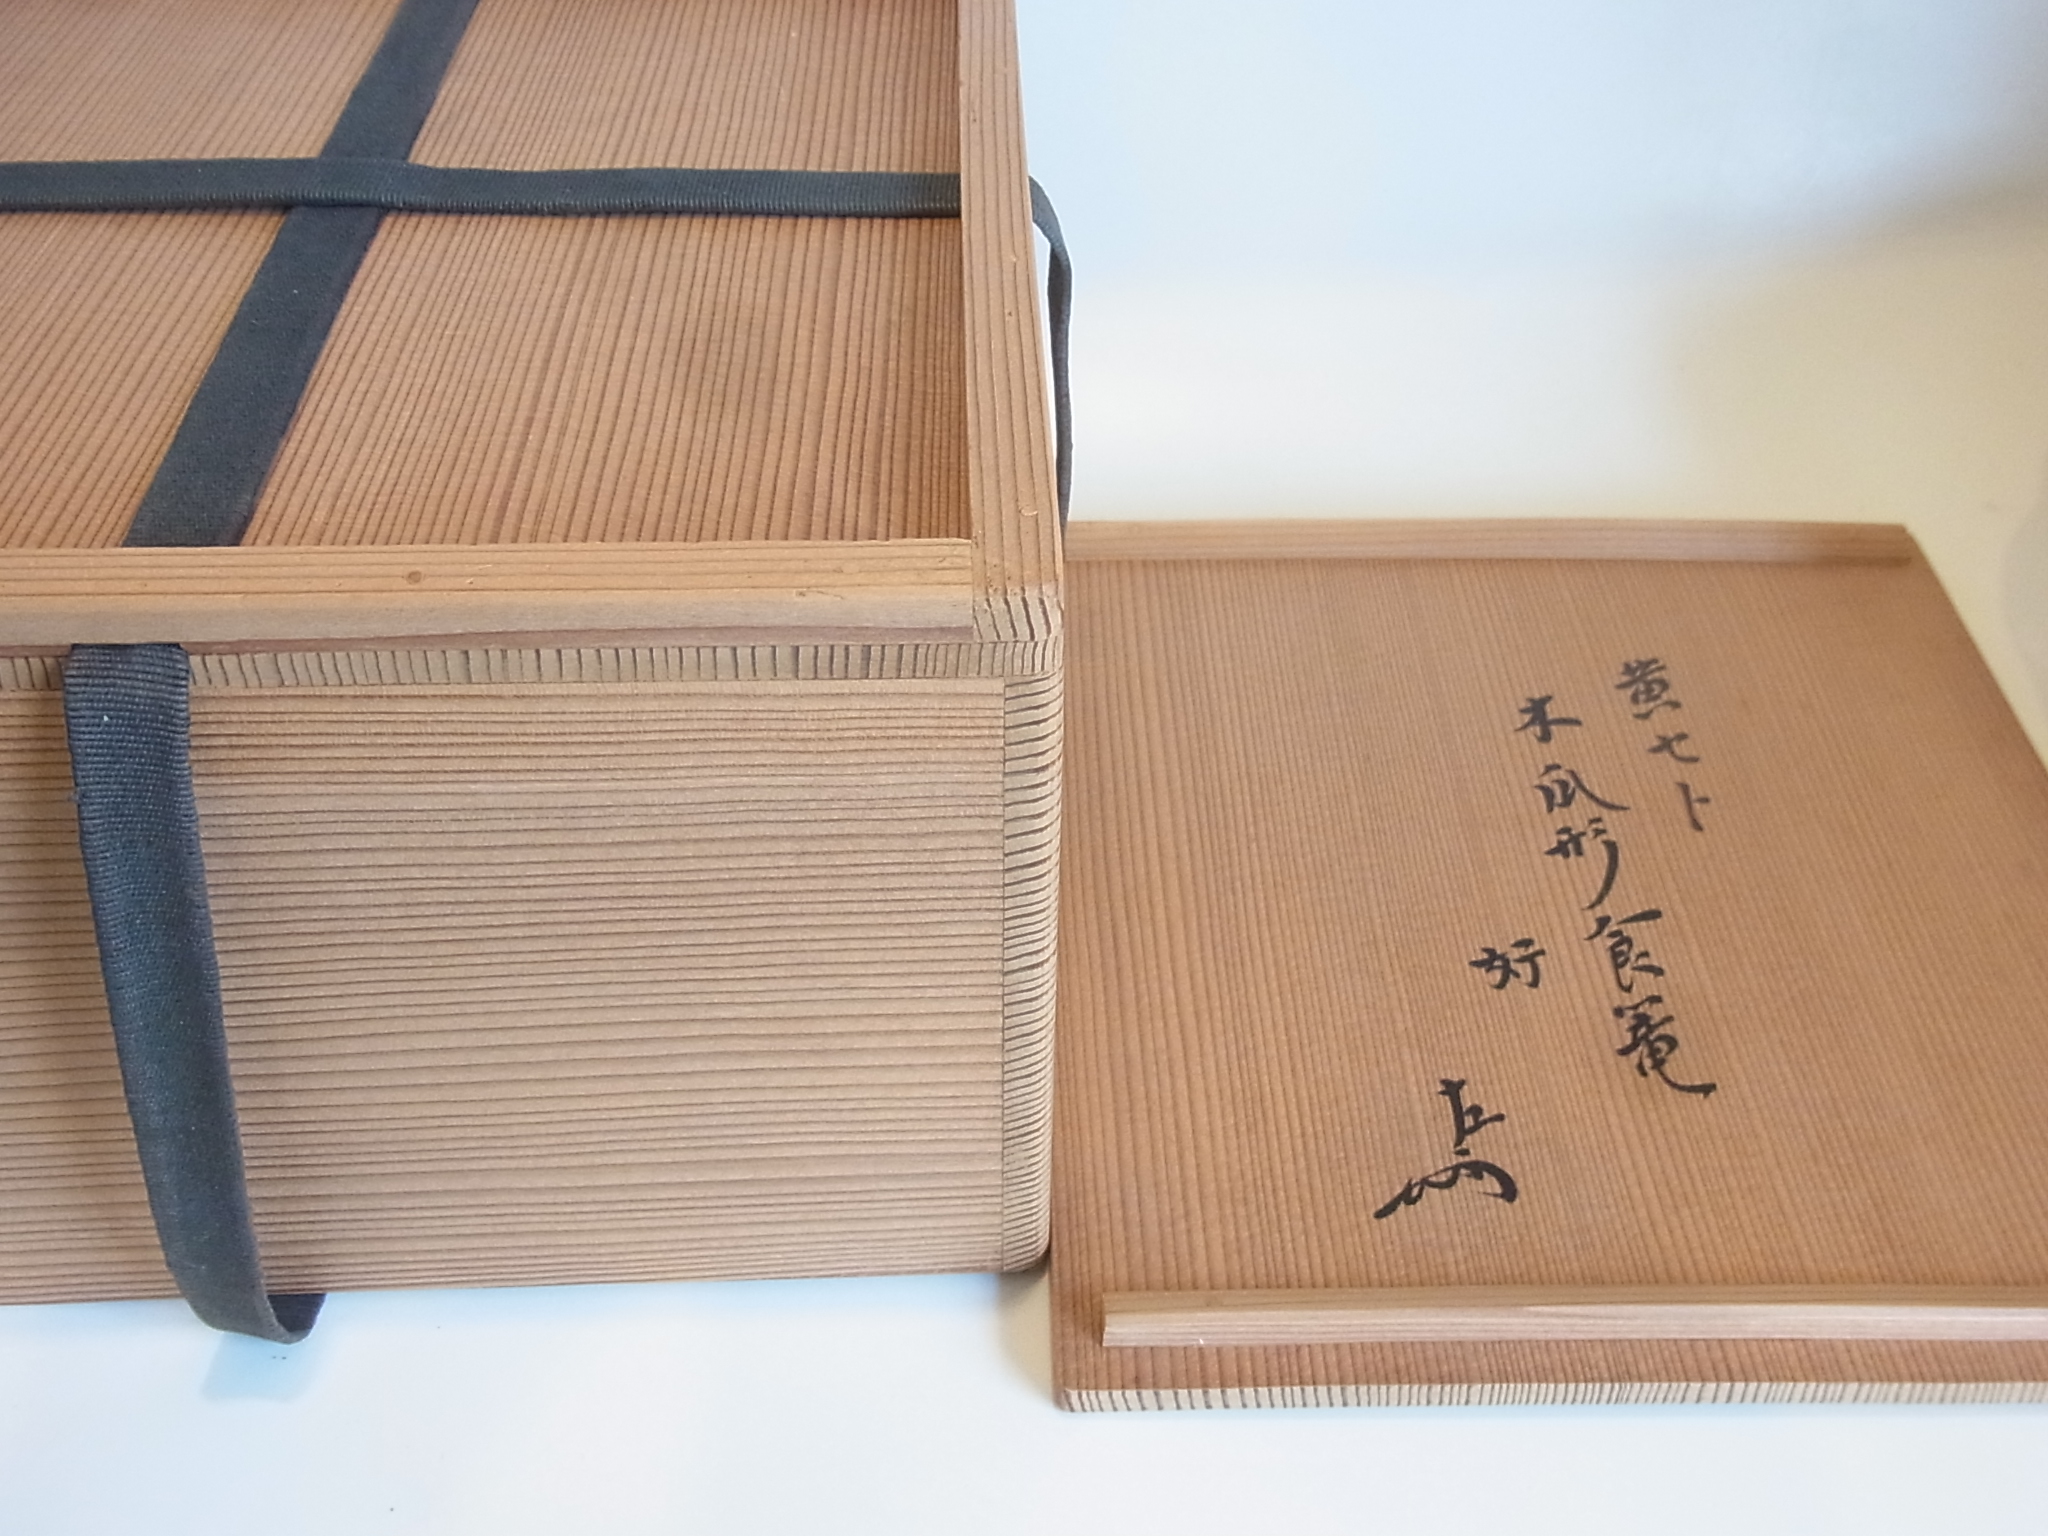 黄セト
木瓜形食篭
好